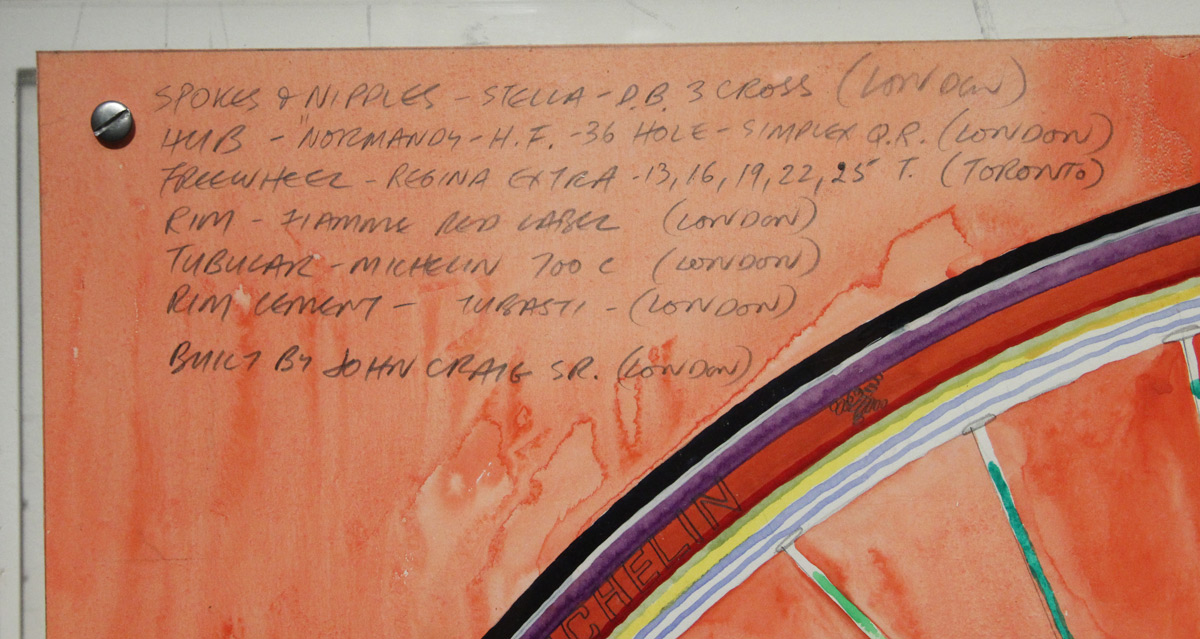 SPOKES & NIPPLES - STELLA - D.B. 3 CROSS (LONDON)
HUB - "NORMANDY - H.F. - 36 HOLE - SIMPLEX Q.R. (LONDON)
FREEWHEEL - REGINA EXTRA - 13, 16, 19, 22, 25 T. (TORONTO)
RIM - FIAMME RED LABEL (LONDON)
TUBULAR - MICHELIN 700 C (LONDON)
RIM CEMENT - TUBASTI - (LONDON)
BUILT BY JOHN CRAIG SR. (LONDON)
CHELIN